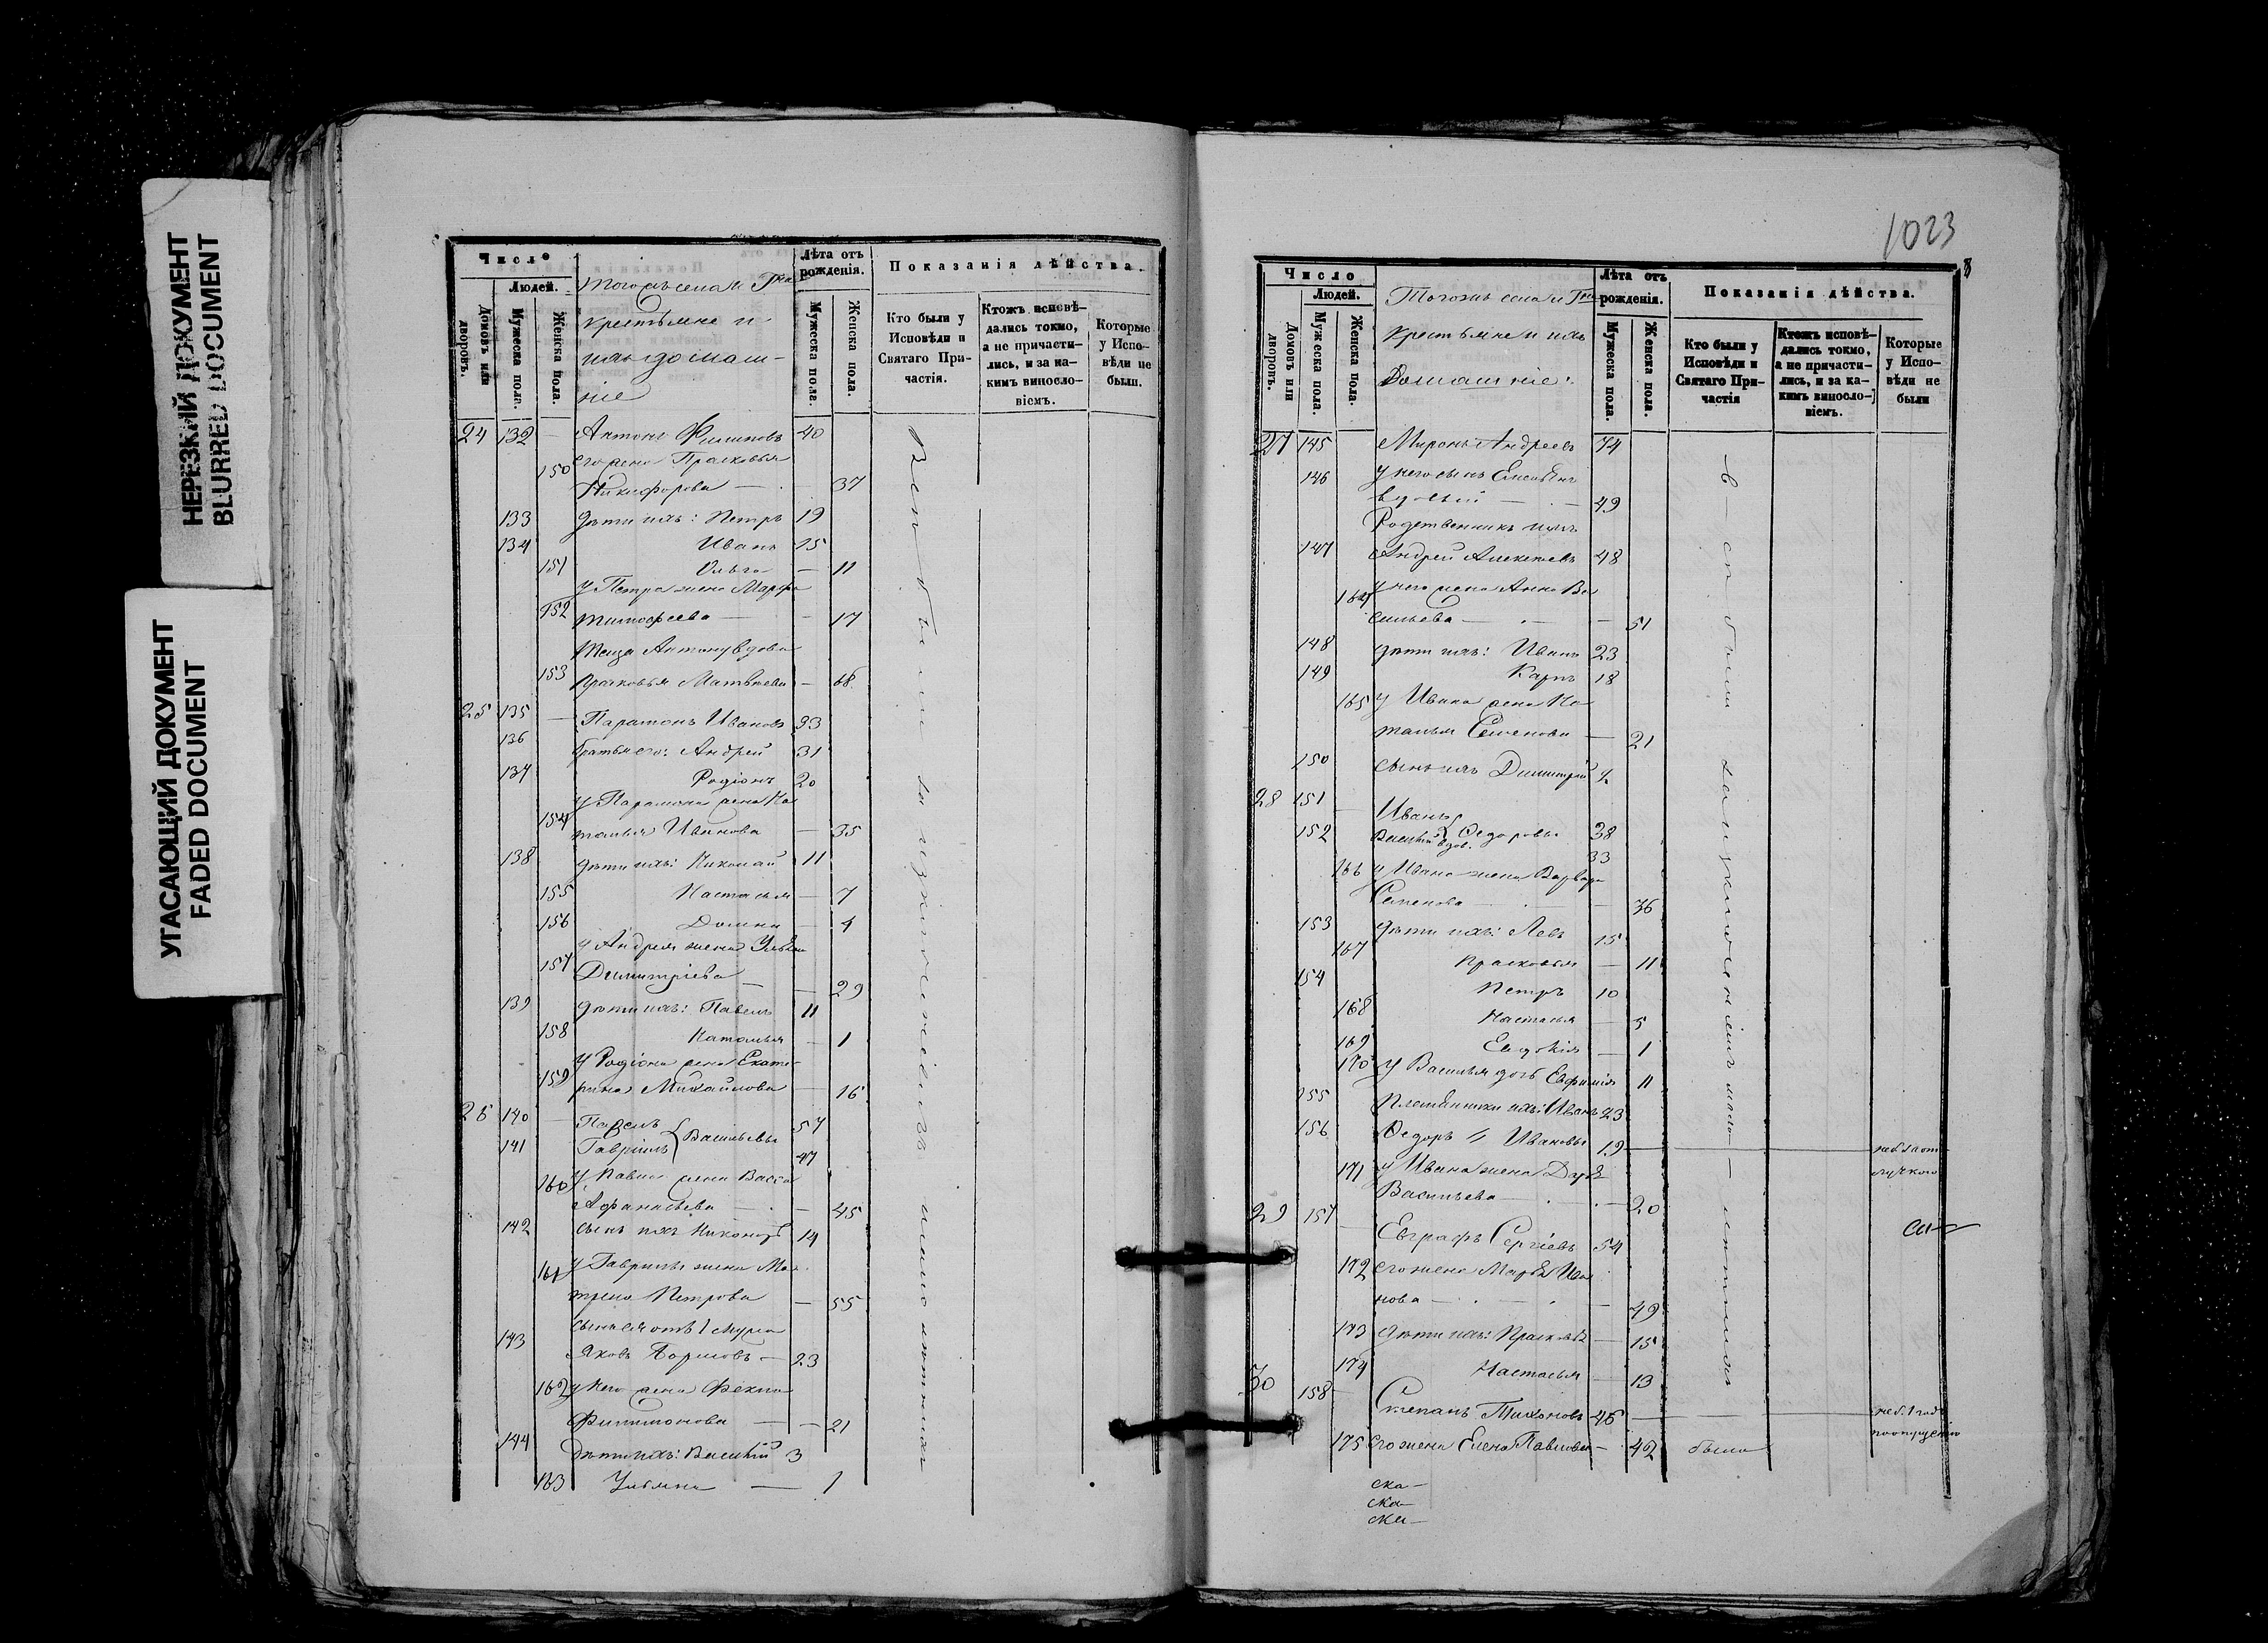 НЕРЕЗКИЙ ДОКУМЕНТ
BLURRED DOCUMENT
УГАСАЮЩИЙ ДОКУМЕНТ
FADED DOCUMENT
Число
Людей.
Домовъ или дворовъ.
Мужеска пола.
Женска пола.
Лѣта отъ рожденія.
Мужеска пола.
Женска пола.
Показанія дѣйства.
Кто были у Исповѣди и Святаго При-частія.
Ктожъ исповѣ-дались токмо, а не причасти-лись, и за ка-кимъ виносло-віемъ.
Которые у Испо-вѣди не были.
Тогожъ села и
крестьяне и
ихъ домаш-
ніе
24 132 — Антонъ Филиповъ 40
его жена Прасковья
150 Никифорова — 37
133 дѣти ихъ: Петръ 19
134 Иванъ 15
151 Ольга — 11
у Петра жена Марфа
152 Тимофеева — 17
Теща Антону вдова
153 Прасковья Матвѣева — 68
25 135 — Парамонъ Ивановъ 33
136 братья его: Андрей 31
137 Родіонъ 20
у Парамона жена На
154 талья Иванова — 35
138 дѣти ихъ: Николай 11
155 Настасья — 7
156 Домна — 4
у Андрея жена
157 Димитріева — 29
139 дѣти ихъ: Павелъ 11
158 Наталья — 1
у Родіона жена Екате-
159 рина Михайлова — 16
26 140 — Павелъ 57
141 Гавріилъ } Васильевы 47
160 у Павла жена Васса
Афанасьева — 45
142 сынъ ихъ Никаноръ 14
161 у Гавріила жена Ма
трена Петрова — 55
сынъ ея отъ 1 мужа
143 Яковъ Борисовъ — 23
162 у него жена Фекла
Филимонова — 21
144 Дѣти ихъ: Василій 3
163 Ульяна — 1
Всѣ были
1023
8
Число
Людей.
Домовъ или дворовъ.
Мужеска пола.
Женска пола.
Лѣта отъ рожденія.
Мужеска пола.
Женска пола.
Показанія дѣйства.
Кто были у Исповѣди и Святаго При-частія
Ктожъ исповѣ-дались токмо, а не причасти-лись, и за ка-кимъ виносло-віемъ.
Которые у Испо-вѣди не были
Тогожъ села и
крестьяне и ихъ
Домашніе:
27 145 Миронъ Андреевъ 74
146 у него сынъ
вдовый — 49
Родственникъ имъ
147 Андрей Алексѣевъ 48
164 у него жена Анна Ва
сильева — 51
148 дѣти ихъ: Иванъ 23
149 Карпъ 18
165 у Ивана жена На
талья Семенова — 21
150 сынъ ихъ Димитрій ½
28 151 — Иванъ
152 Василій вдов. } Федоровы 38
33
166 у Ивана жена Варвара
Семенова — 36
153 дѣти ихъ: Левъ 15
167 Прасковья — 11
154 Петръ 10
168 Настасья — 5
169 Евдокія — 1
170 у Василья дочь Евфимія 11
155 Племянники ихъ: Иванъ 23
156 Федоръ } Ивановы 19 — не б. за от
лучкою
171 у Ивана жена Дарья
Васильева — 20
29 157 — Евграфъ Сергіевъ 54
172 его жена Марья Ива
нова — 49
173 дѣти ихъ: Прасковья — 15
174 Настасья — 13
30 158 — Степанъ Тихоновъ 46 — не б. 1 годъ
по опущенію
175 его жена Елена Павлова — 42 была
Всѣ были за исключеніемъ малолѣтнихъ
ска—
ска—
ска—